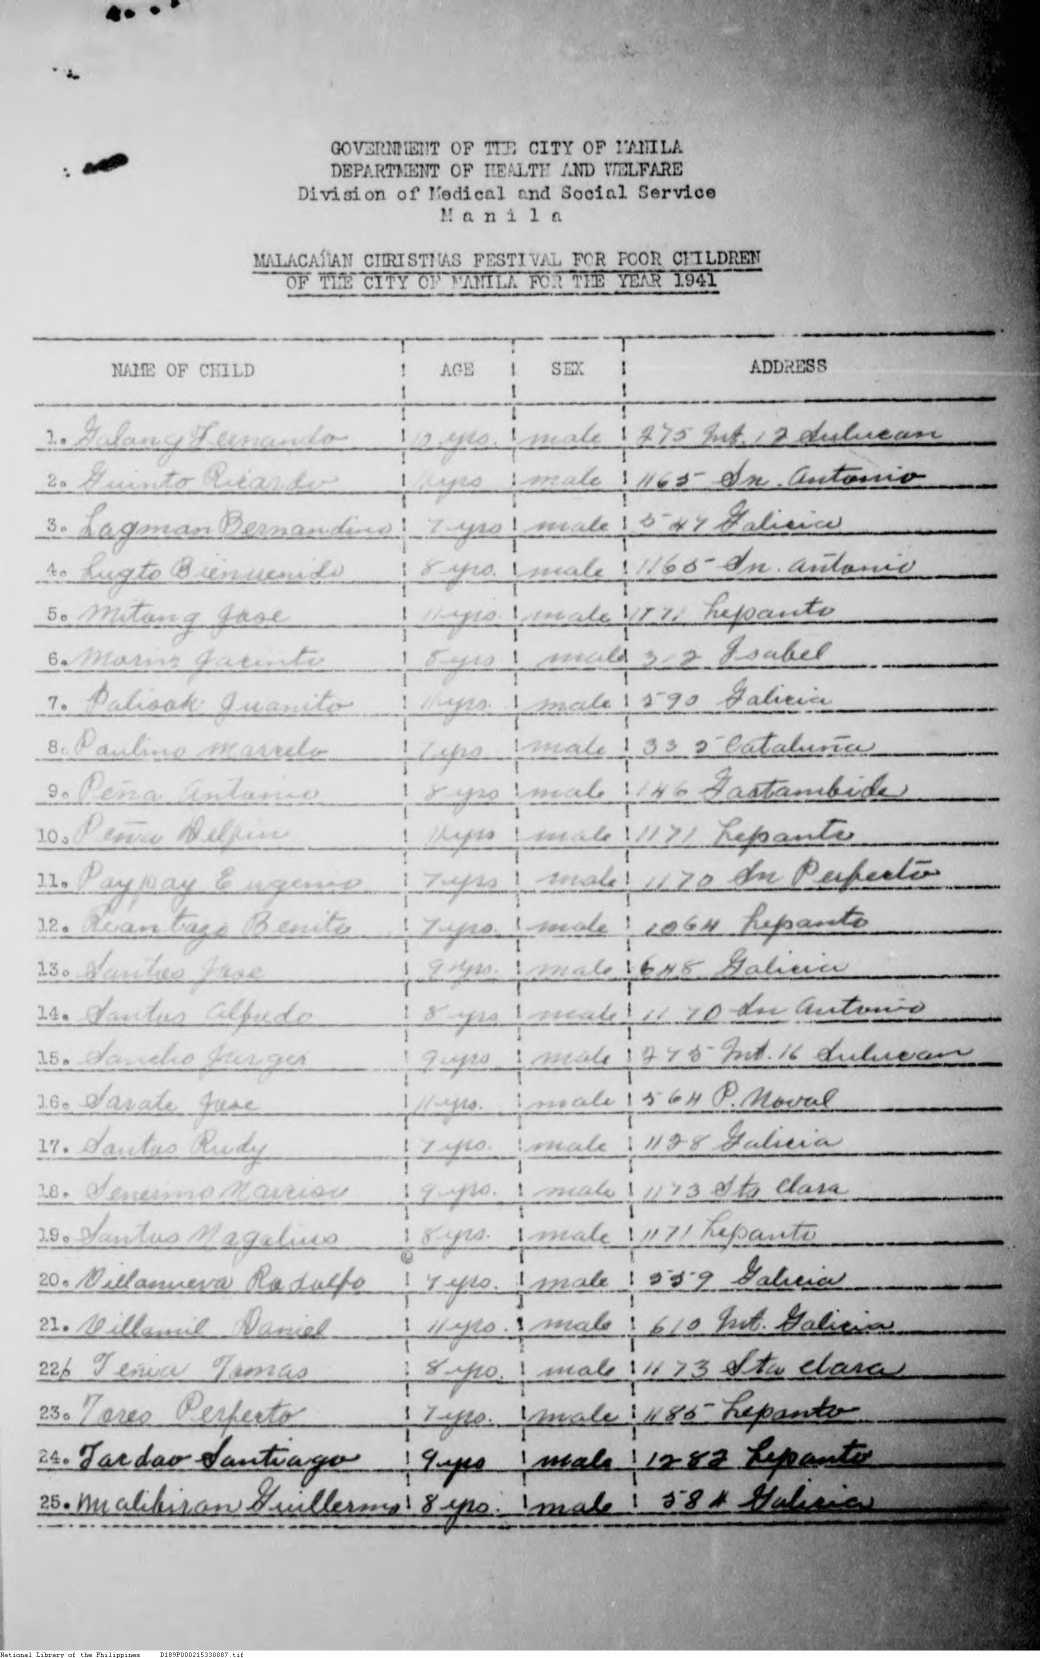 GOVERNMENT OF THE CITY OF MANILA
DEPARTMENT OF HEALTH AND WELFARE
Division of Medical and Social Service
M a n i l a
MALACAÑAN CHRISTMAS FESTIVAL FOR POOR CHILDREN
OF THE CITY OF MANILA FOR THE YEAR 1941
NAME OF CHILD AGE SEX ADDRESS
1. Galang Fernando 12 yrs. male 275 Int. 12 Sulucan
2. Guinto Ricardo yrs male 1165 Sn. Antonio
3. Lagman Bernardino 7 yrs male 547 Galicia
4. Lugto Bienvenido 8 yrs. male 1165 Sn. Antonio
5. Mitang Jose 11 yrs male 1171 Lepanto
6. Jacinto 8 yrs male 312 Isabel
7. Palisok Juanito yrs. male 590 Galicia
8. Paulino Marcelo 7 yrs. male 335 Cataluña
9. Peña Antonio 8 yrs male 146 Gastambide
10. Peña Delfin yrs male 1171 Lepanto
11. Paypay Eugenio 7 yrs male 1170 Sn Perfecto
12. Benito 7 yrs. male 1064 Lepanto
13. Santos Jose 9 yrs. male 648 Galicia
14. Santos Alfredo 8 yrs male 1170 Sn Antonio
15. Sancho 9 yrs male 275 Int. 16 Sulucan
16. Sarate Jose 11 yrs. male 564 P. Noval
17. Santos Rudy 7 yrs. male 1128 Galicia
18. 9 yrs. male 1173 Sta Clara
19. Santos 8 yrs. male 1171 Lepanto
20. Villanueva Rodolfo 7 yrs. male 559 Galicia
21. Villamil Daniel 11 yrs. male 610 Int. Galicia
22. Tomas 8 yrs. male 1173 Sta Clara
23. Tores Perfecto 7 yrs. male 1185 Lepanto
24. Tardao Santiago 9 yrs male 1282 Lepanto
25. Malibiran Guillermo 8 yrs. male 584 Galicia
National Library of the Philippines D189P000215330087.tif